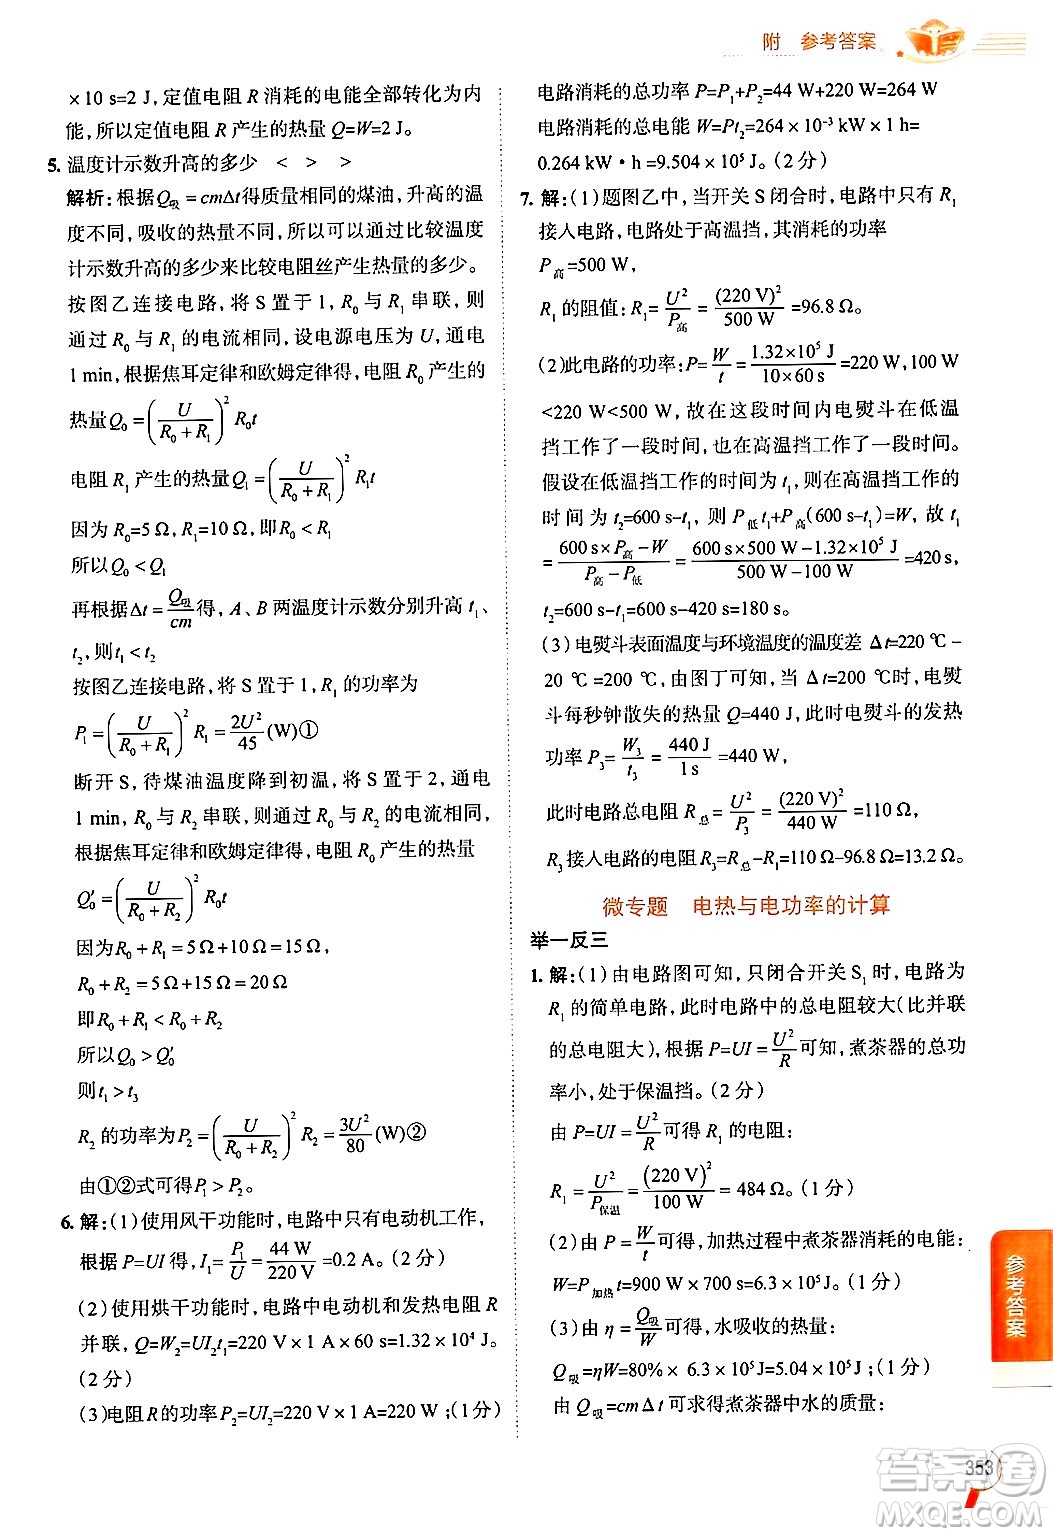 附　参考答案
×10 s=2 J,定值电阻 R 消耗的电能全部转化为内
能,所以定值电阻 R 产生的热量 Q=W=2 J。
5. 温度计示数升高的多少　<　>　>
解析:根据Q吸=cmΔt得质量相等的煤油,升高的温
度不同,吸收的热量不同,所以可以通过比较温度
计示数升高的多少来比较电阻丝产生热量的多少。
按图乙连接电路,将 S 置于 1,R₀ 与 R₁ 串联,则
通过 R₀ 与 R₁ 的电流相同,设电源电压为 U,通电
1 min,根据焦耳定律和欧姆定律得,电阻 R₀ 产生的
热量 Q₀=(U/(R₀+R₁))²R₀t
电阻 R₁ 产生的热量 Q₁=(U/(R₀+R₁))²R₁t
因为 R₀=5 Ω,R₁=10 Ω,即R₀<R₁
所以 Q₀<Q₁
再根据Δt=Q吸/cm得,A、B 两温度计示数分别升高 t₁、
t₂,则t₁<t₂
按图乙连接电路,将 S 置于 1,R₁ 的功率为
P₁=(U/(R₀+R₁))²R₁=2U²/45(W)①
断开 S,待煤油温度降到初温,将 S 置于 2,通电
1 min,R₀ 与 R₂ 串联,则通过 R₀ 与 R₂ 的电流相同。
根据焦耳定律和欧姆定律得,电阻 R₀ 产生的热量
Q₀′=(U/(R₀+R₂))²R₀t
因为 R₀+R₁=5 Ω+10 Ω=15 Ω,
R₀+R₂=5 Ω+15 Ω=20 Ω
即R₀+R₁<R₀+R₂
所以Q₀>Q₀′
则t₁>t₃
R₂ 的功率为P₂=(U/(R₀+R₂))²R₂=3U²/80(W)②
由①②式可得P₁>P₂。
6. 解:(1)使用风干功能时,电路中只有电动机工作,
根据 P=UI 得,I₁=P₁/U=44 W/220 V=0.2 A。(2 分)
(2)使用烘干功能时,电路中电动机和发热电阻 R
并联,Q=W₂=UI₂t₁=220 V×1 A×60 s=1.32×10⁴ J。
(2 分)
(3)电阻R的功率P₂=UI₂=220 V×1 A=220 W,;(1分)
电路消耗的总功率 P=P₁+P₂=44 W+220 W=264 W
电路消耗的总电能 W=Pt₂=264×10⁻³ kW×1 h=
0.264 kW·h=9.504×10⁵ J。(2 分)
7. 解:(1)题图乙中,当开关 S 闭合时,电路中只有 R₁
接入电路,电路处于高温挡,其消耗的功率
P高=500 W,
R₁的阻值:R₁=U²/P高=(220 V)²/500 W=96.8 Ω。
(2)此电路的功率:P=W/t=1.32×10⁵ J/10×60 s=220 W,100 W
<220 W<500 W,故在这段时间内电熨斗在低温
挡工作了一段时间,也在高温挡工作了一段时间。
假设在低温挡工作的时间为 t₁,在高温挡工作的
时间为 t₂=600 s-t₁,则 P低t₁+P高(600 s-t₁)=W,故 t₁
=(600 s×P高-W)/(P高-P低)=(600 s×500 W-1.32×10⁵ J)/(500 W-100 W)=420 s,
t₂=600 s-t₁=600 s-420 s=180 s。
(3)电熨斗表面温度与环境温度的温度差 Δt=220 ℃-
20 ℃=200 ℃,由图丁可知,当 Δt=200 ℃时,电熨
斗每秒钟散失的热量 Q=440 J,此时电熨斗的发热
功率 P₃=W₃/t₃=440 J/1 s=440 W,
此时电路总电阻 R总=U²/P₃=(220 V)²/440 W=110 Ω,
R₃接入电路的电阻R₃=R总-R₁=110 Ω-96.8 Ω=13.2 Ω。
微专题　电热与电功率的计算
举一反三
1. 解:(1)由电路图可知,只闭合开关 S₁ 时,电路为
R₁ 的简单电路,此时电路中的总电阻较大(比并联
的总电阻大),根据 P=UI=U²/R可知,煮茶器的总功
率小,处于保温挡。(2 分)
由 P=UI=U²/R可得 R₁ 的电阻:
R₁=U²/P保温=(220 V)²/100 W=484 Ω。(1 分)
(2)由 P=W/t可得,加热过程中煮茶器消耗的电能:
W=P加热t=900 W×700 s=6.3×10⁵ J。(1 分)
(3)由 η=Q吸/W可得,水吸收的热量:
Q吸=ηW=80%×6.3×10⁵J=5.04×10⁵ J;(1 分)
由 Q吸=cmΔt可求得煮茶器中水的质量:
参考答案
353
答案圈
MXQE.COM